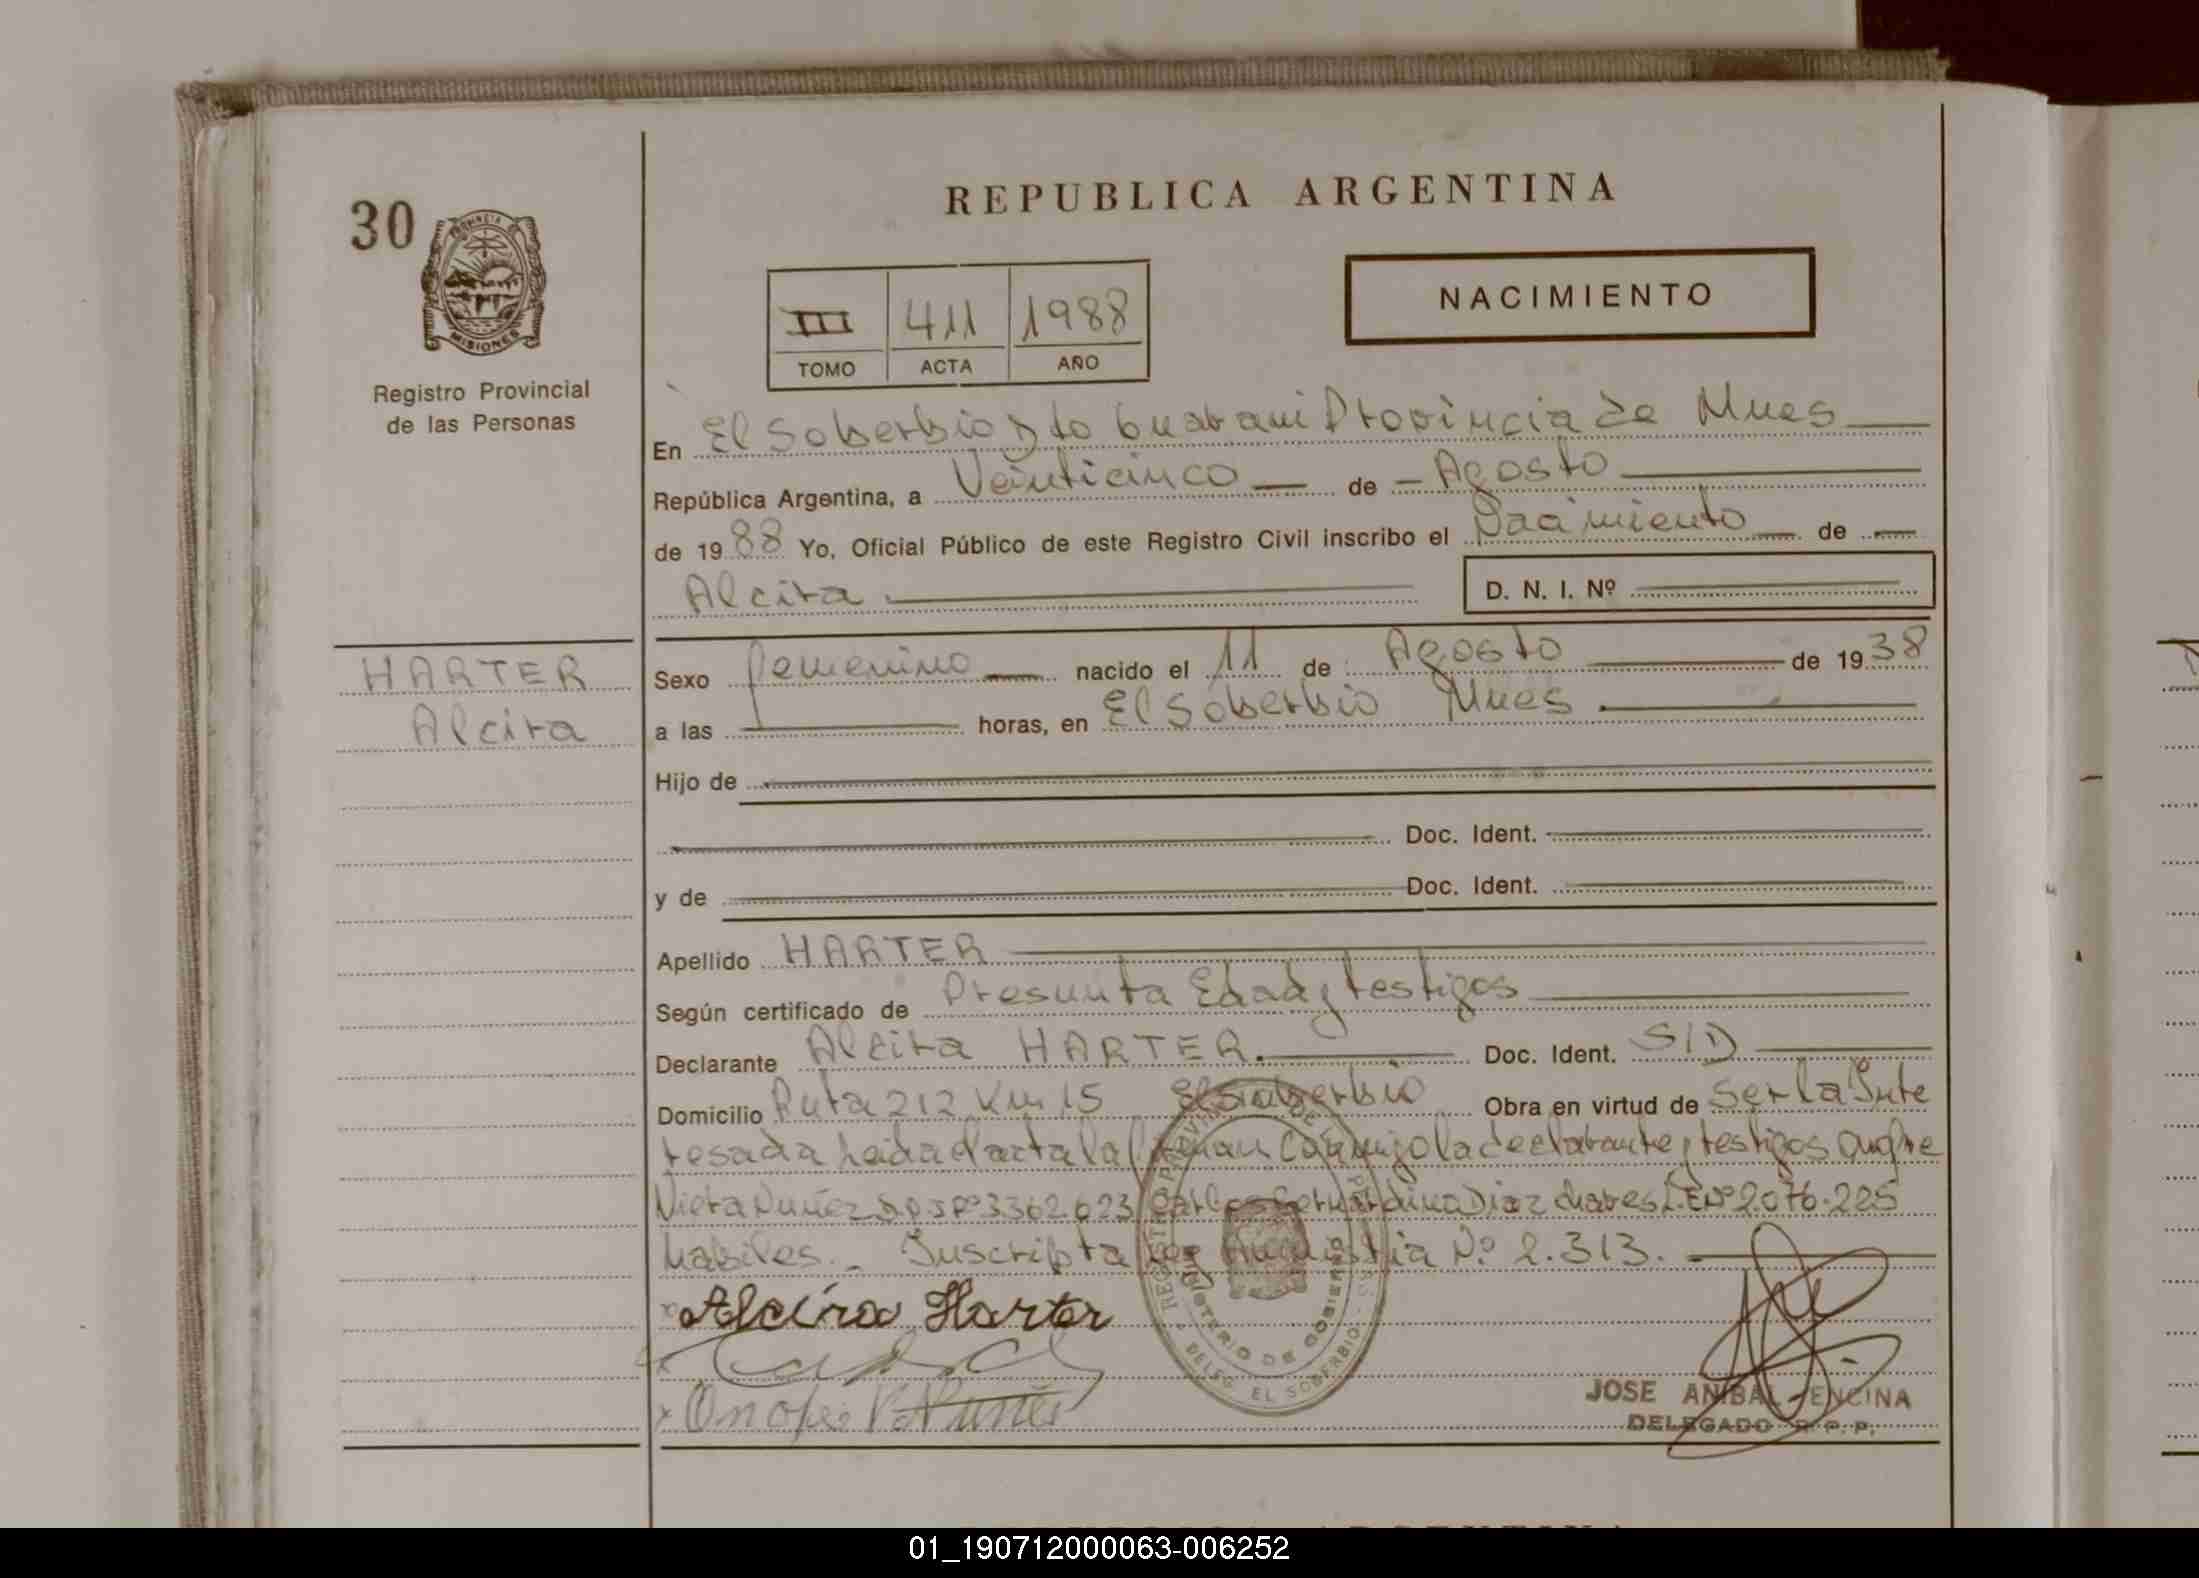 REPUBLICA ARGENTINA
30
PROVINCIA DE
MISIONES
Registro Provincial
de las Personas
NACIMIENTO
III 411 1988
TOMO ACTA AÑO
En El Soberbio Dto Guarani Provincia de Mnes
República Argentina, a Veinticinco de Agosto
de 1988 Yo, Oficial Público de este Registro Civil inscribo el Nacimiento de
Alcira D. N. I. Nº
HARTER
Alcira
Sexo femenino nacido el 11 de Agosto de 1938
a las horas, en El Soberbio Mnes
Hijo de
Doc. Ident.
y de Doc. Ident.
Apellido HARTER
Según certificado de Presunta Edad y testigos
Declarante Alcira HARTER. Doc. Ident. S/D
Domicilio Ruta 212 Km 15 El Soberbio Obra en virtud de Ser la Inte
resada Leida el acta la firman conmigo la declarante y testigos
Nuñez Nº 3362.623 Carlos Bernardino Diaz Chaves L.E Nº 2.076.225
habiles. _ Inscripta Ley Amnistia Nº 2.313. -
x Alcira Harter
x
x V. Nuñez
MINISTERIO DE GOBIERNO
DELEG. EL SOBERBIO
JOSE ANIBAL ENCINA
DELEGADO R. P. P.
01_190712000063-006252